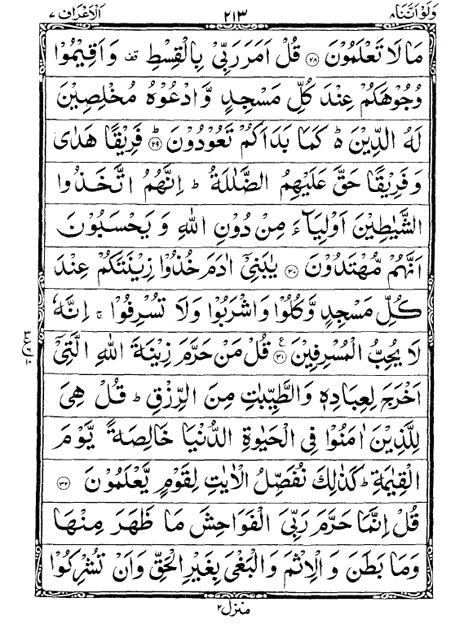 وَلَوْ اَنَّنَا ٨ ٢١٣ اَلْاَعْرَاف ٧
مَا لَا تَعْلَمُوْنَ ﴿۲۸﴾ قُلْ اَمَرَ رَبِّیْ بِالْقِسْطِ ۟ وَ اَقِیْمُوْا
وُجُوْهَكُمْ عِنْدَ كُلِّ مَسْجِدٍ وَّ ادْعُوْهُ مُخْلِصِیْنَ
لَهُ الدِّیْنَ ؕ كَمَا بَدَاَكُمْ تَعُوْدُوْنَ ﴿۲۹﴾ فَرِیْقًا هَدٰی
وَ فَرِیْقًا حَقَّ عَلَیْهِمُ الضَّلٰلَةُ ؕ اِنَّهُمُ اتَّخَذُوا
الشَّیٰطِیْنَ اَوْلِیَآءَ مِنْ دُوْنِ اللّٰهِ وَ یَحْسَبُوْنَ
اَنَّهُمْ مُّهْتَدُوْنَ ﴿۳۰﴾ یٰبَنِیْۤ اٰدَمَ خُذُوْا زِیْنَتَكُمْ عِنْدَ
كُلِّ مَسْجِدٍ وَّ كُلُوْا وَ اشْرَبُوْا وَ لَا تُسْرِفُوْا ۚ اِنَّهٗ
لَا یُحِبُّ الْمُسْرِفِیْنَ ﴿۳۱﴾ قُلْ مَنْ حَرَّمَ زِیْنَةَ اللّٰهِ الَّتِیْۤ
اَخْرَجَ لِعِبَادِهٖ وَ الطَّیِّبٰتِ مِنَ الرِّزْقِ ؕ قُلْ هِیَ
لِلَّذِیْنَ اٰمَنُوْا فِی الْحَیٰوةِ الدُّنْیَا خَالِصَةً یَّوْمَ
الْقِیٰمَةِ ؕ كَذٰلِكَ نُفَصِّلُ الْاٰیٰتِ لِقَوْمٍ یَّعْلَمُوْنَ ﴿۳۲﴾
قُلْ اِنَّمَا حَرَّمَ رَبِّیَ الْفَوَاحِشَ مَا ظَهَرَ مِنْهَا
وَ مَا بَطَنَ وَ الْاِثْمَ وَ الْبَغْیَ بِغَیْرِ الْحَقِّ وَ اَنْ تُشْرِكُوْا
منزل ٢